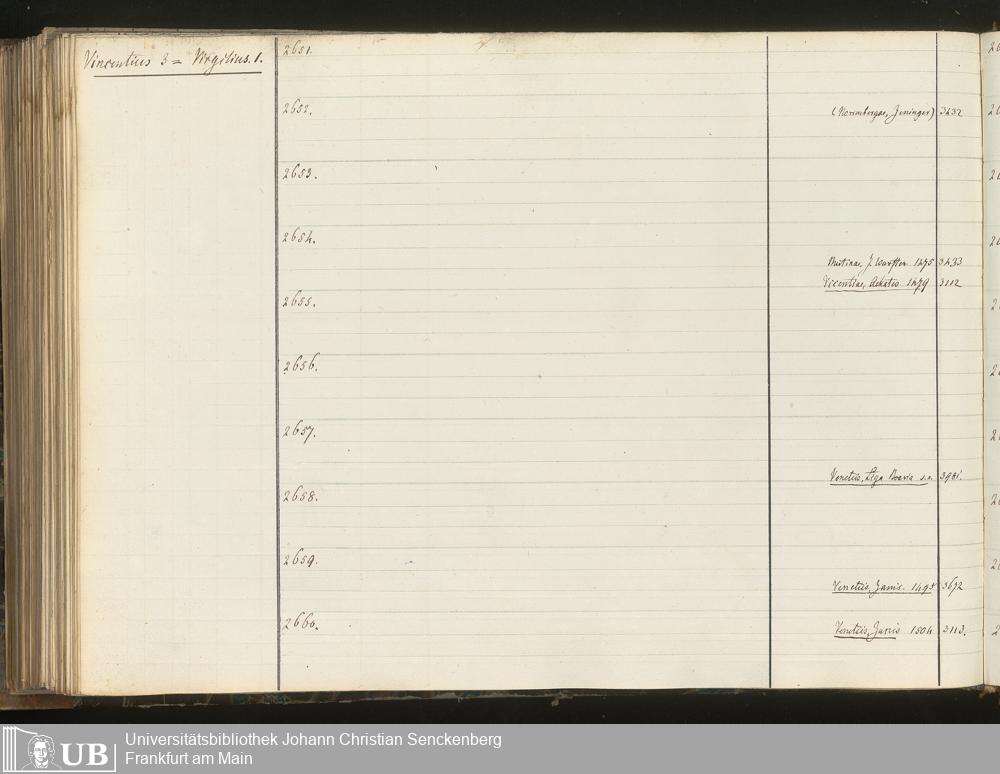 Vincentius 3 = Virgilius. 1.
2651.
2652.
(Norimbergae, Zeninger) 3432
2653.
2654.
Mutinae, J. Wurster 1475 3433
Vicentiae, Achates 1479 3112
2655.
2656.
2657.
Venetiis, s.a. 3981.
2658.
2659.
Venetiis, 3672
2660.
Venetiis, 1504 3113.
UB
Universitätsbibliothek Johann Christian Senckenberg
Frankfurt am Main